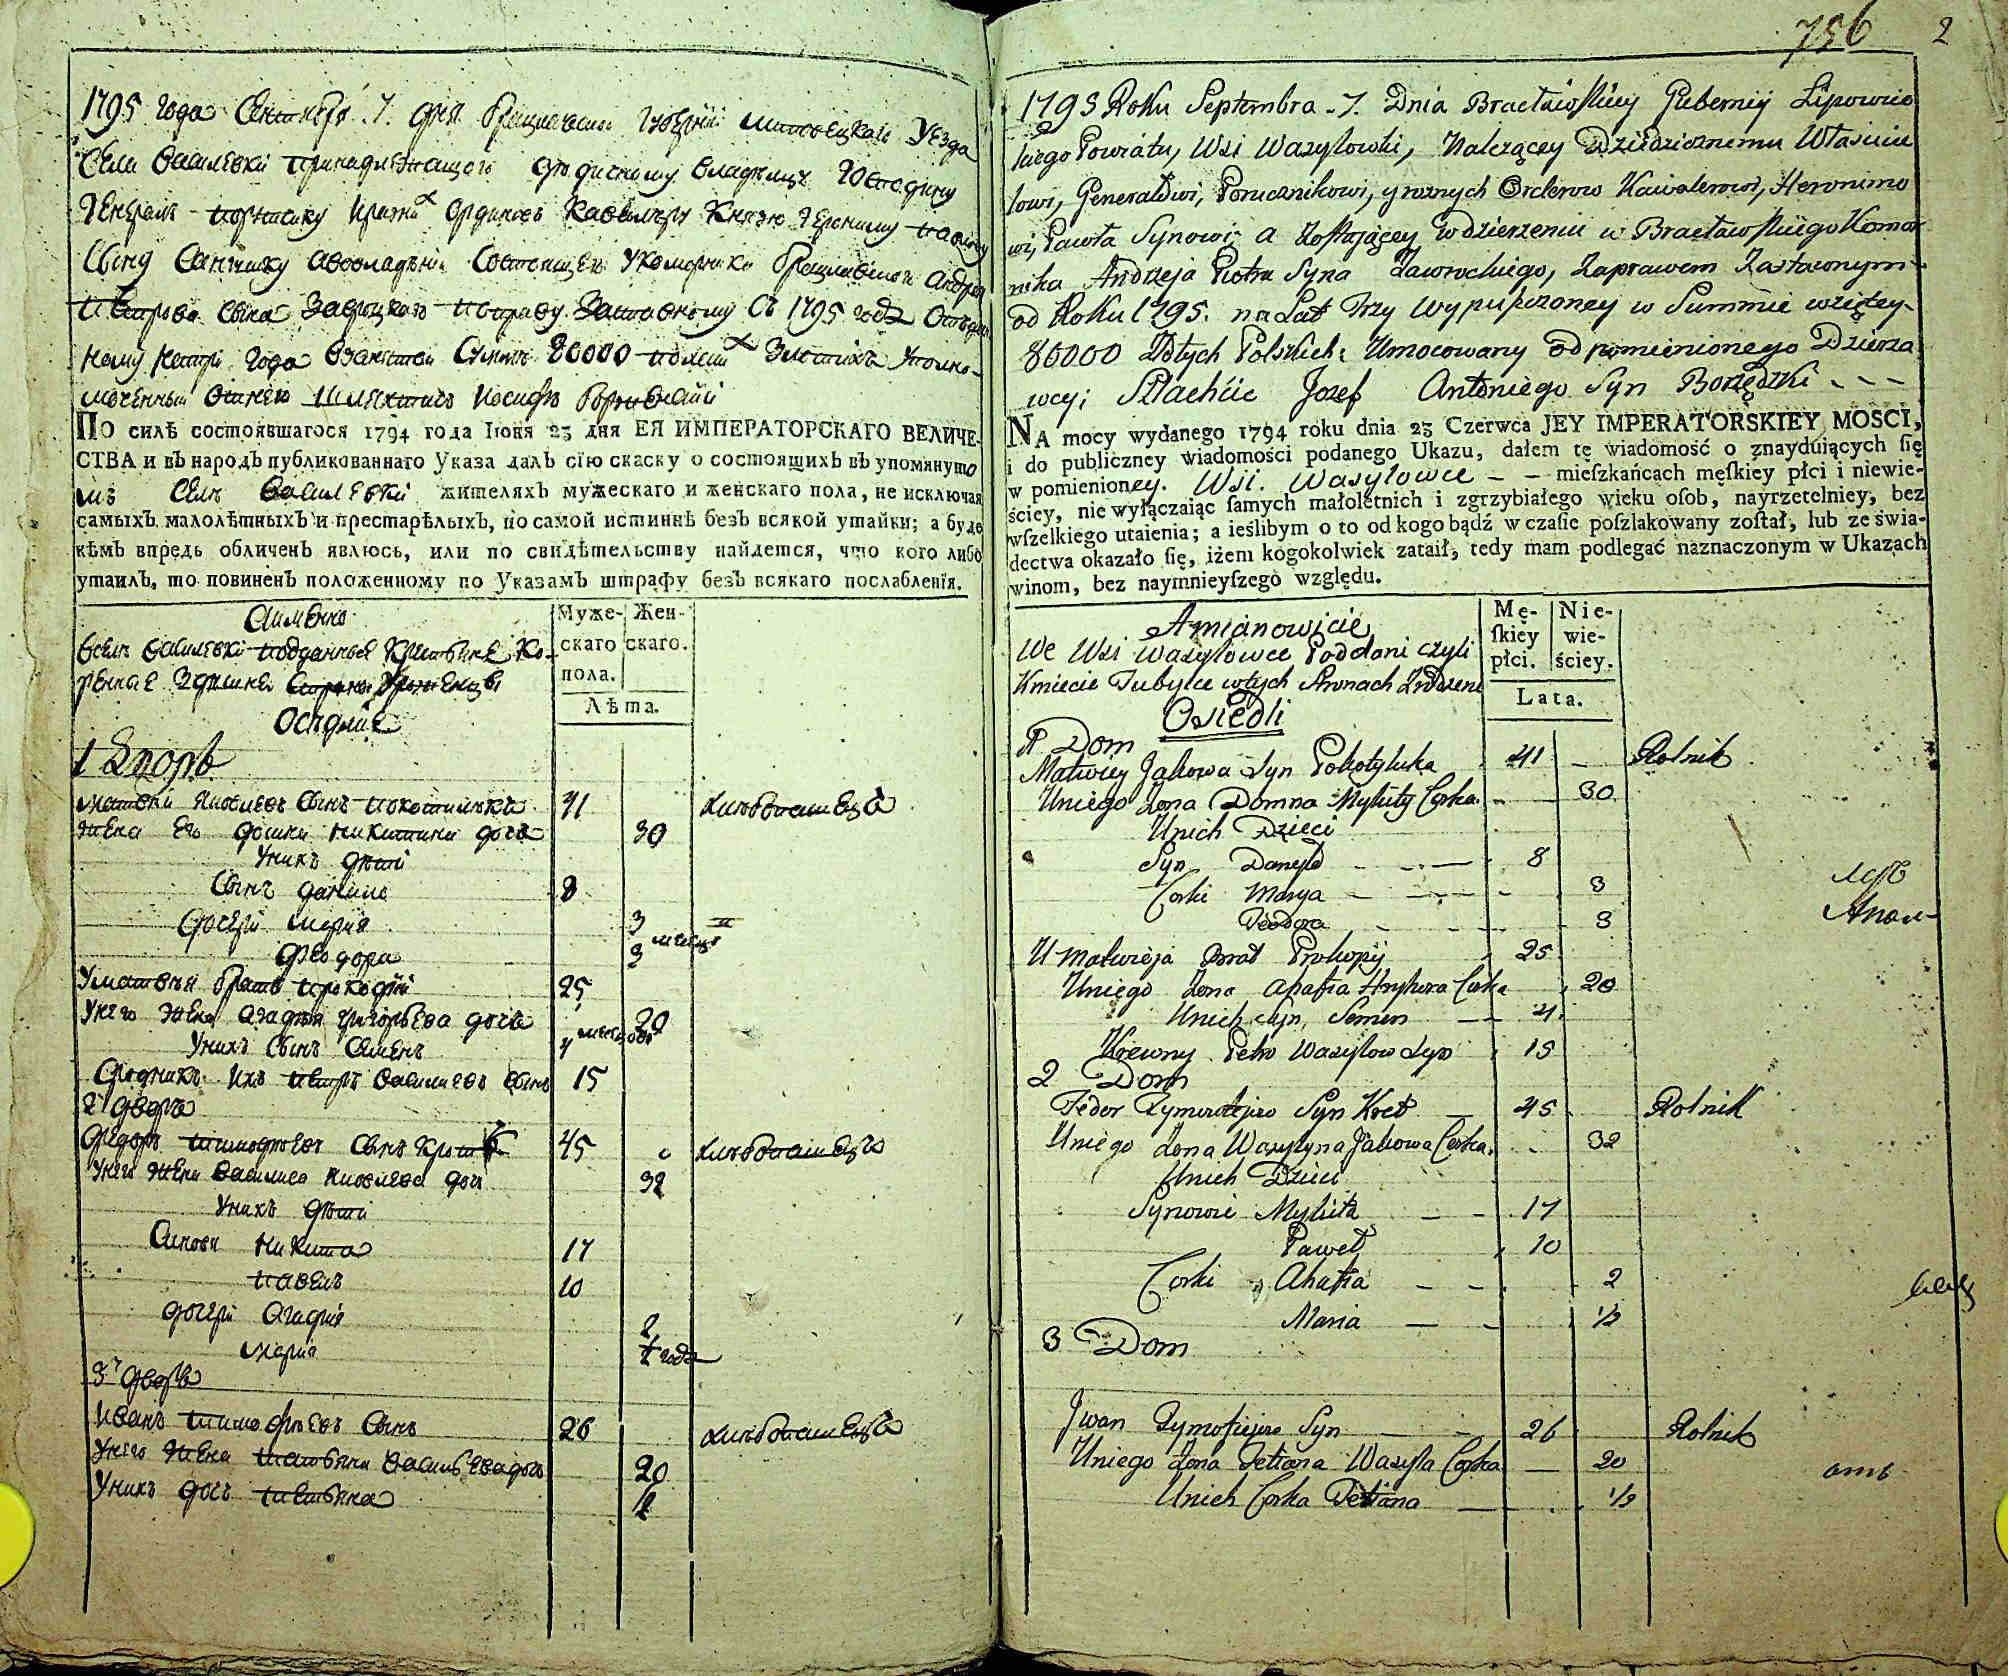 1795 года Сентября 7. дня Брацлавской Губернїи Липовецкаго Уезда
Села Василевки принадлежащого дедичному владелцу Господину
Генералъ-порутчику Кавалеру Князю Герониму
Сыну Сангушку Брацлавского Андрея
Петрова сына Завроцкаго по праву Заставному Съ 1795 года
года Взаимной Суммъ 80000 полскихъ Злотихъ Уполно-
моченный Отнего Шляхтичъ Иосифъ
ПО силѣ состоявшагося 1794 года Іюня 23 дня ЕЯ ИМПЕРАТОРСКАГО ВЕЛИЧЕ-
СТВА и въ народъ публикованнаго Указа далъ сїю скаску о состоящихъ въ упомянуто
мъ Селе Василевки жителяхъ мужескаго и женскаго пола, не исключая
самыхъ малолѣтныхъ и престарѣлыхъ, по самой истиннѣ безъ всякой утайки; а буде
кѣмъ впредь обличенъ явлюсь, или по свидѣтельству найдется, что кого либо
утаилъ, то повиненъ положенному по Указамъ штрафу безъ всякаго послабленїя.
Аименно
Муже-скаго пола. Жен-скаго.
Лѣта.
Всели Василевки подданные Крестьяне Ко-
ренные здешней Стороны Уроженцы
Оседлие
1 Дворъ
Матвей Яковлевъ Сынъ Покотилюкъ 41 хлебопашецъ
Жена Его Домна Никитина дочь 30
Унихъ дети
Сынъ Данило 8
Дочери Мария 3
Феодора 3 месяца
Уматвея братъ Прокофий 25
Унего Жена Агафия Григорьева дочь 20
Унихъ Сынъ Семенъ 4 месяцовъ
Сродникъ Ихъ Петръ Васильевъ Сынъ 15
2 дворъ
Федоръ Тимофеевъ Сынъ Кротъ 45 хлебопашецъ
Унего Жена Василиса Яковлева дочь 32
Унихъ дети
Синови Никита 17
Павелъ 10
дочери Агафия 2
Мария ½ года
3 дворъ
Иванъ Тимофеевъ Сынъ 26 хлебопашецъ
Унего Жена Татьяна Васильева дочь 20
Унихъ дочь Татьяна ½
756 2
1795 Roku Septembra 7. Dnia Bracławskiey Guberniy Lipowiec
kiego Powiatu, Wsi Wasylowki, Należącey Dziedzicznemu Właścicie
lowi, Generałowi, Porucznikowi, y roznych Orderow Kawalerowi, Heronimo
wi, Pawła Synowi; a zostaiącey w dzierzeniu w Bracławskiego Komor
nika Andrzeja Piotra Syna Zawrockiego, Zaprawem Zastawnym
od Roku 1795. na Lat Trzy wypuszczoney w Summie wziętey
80000 Złotych Polskich: Umocowany od pomienionego Dzierża
wcy; Szlachcic Jozef Antoniego Syn Borzędzki - - -
NA mocy wydanego 1794 roku dnia 23 Czerwca JEY IMPERATORSKIEY MOSCI,
i do publiczney wiadomości podanego Ukazu, dałem tę wiadomość o znayduiących ſię
w pomienioney. Wsi. Wasylowce - - mieſzkańcach męſkiey płci i niewie-
ściey, nie wyłączaiąc ſamych małoletnich i zgrzybiałego wieku oſob, nayrzetelniey, bez
wſzelkiego utaienia; a ieślibym o to od kogo bądź w czaſie poſzlakowany zoſtał, lub ze świa-
dectwa okazało ſię, iżem kogokolwiek zataił, tedy mam podlegać naznaczonym w Ukazach
winom, bez naymnieyſzego względu.
Amianowicie
Mę-ſkiey płci. Nie-wie-ściey.
Lata.
We Wsi Wasylowce Poddani czyli
Kmiecie Tubylce w tych Stronach Zrodzeni
Osiedli
1 Dom
Matwiey Jakowa Syn Pokotyluka 41 — Rolnik
Uniego Zona Domna Mykity Corka - — 30
Unich Dzieci
Syn Danyło 8
Corki Marya 3
Teodora 3
U Matwieja Brat Prokopiy 25
Uniego Zona Ahafia Hryhora Corka 20
Unich Syn Semen 4
Krewny Petro Wasylow Syn 15
2 Dom
Fedor Tymoteja Syn Kret 45 Rolnik
Uniego Zona Wasylyna Jakowa Corka. 32
Unich Dzieci
Synowie Mykita 17
Paweł 10
Corki Ahafia 2
Maria ½
3 Dom
Jwan Tymofieja Syn 26 Rolnik
Uniego Zona Tetiana Wasyla Corka 20
Unich Corka Tetiana ½